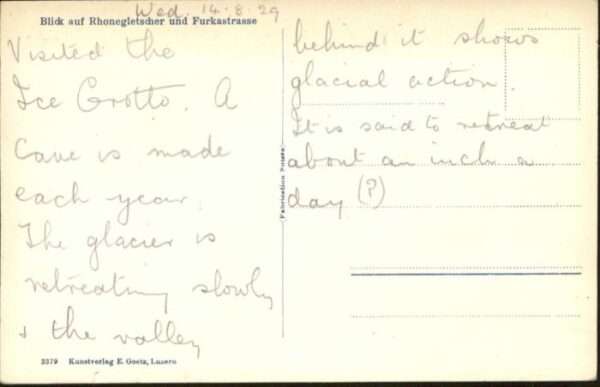 Wed. 14.8.29
Blick auf Rhonegletscher und Furkastrasse
Visited the
Ice Grotto. A
Cave is made
each year.
The glacier is
retreating slowly
+ the valley
behind it shows
glacial action.
It is said to retreat
about an inch a
day (?)
Fabrication Suisse
2379 Kunstverlag E. Goetz, Luzern